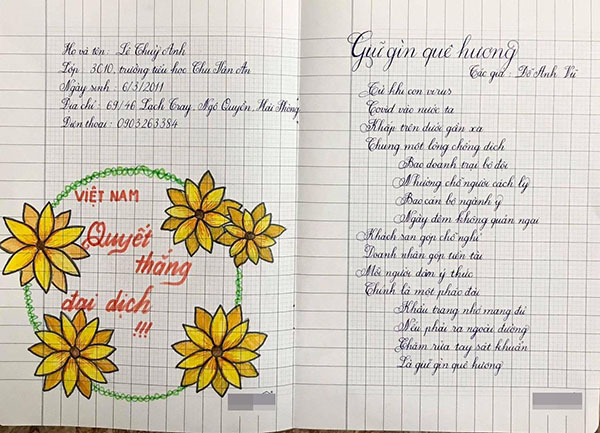 Họ và tên: Lê Thuỳ Anh
Lớp: 3C10, trường tiểu học Chu Văn An
Ngày sinh: 6/3/2011
Địa chỉ: 69/46 Lạch Tray, Ngô Quyền, Hải Phòng
Điện thoại: 0903263384
VIỆT NAM
Quyết
thắng
đại dịch
!!!
Giữ gìn quê hương
Tác giả: Đỗ Anh Vũ
Từ khi con virus
Covid vào nước ta
Khắp trên dưới gần xa
Chung một lòng chống dịch
Bao doanh trại bộ đội
Nhường chỗ người cách ly
Bao cán bộ ngành y
Ngày đêm không quản ngại
Khách sạn góp chỗ nghỉ
Doanh nhân góp tiền tài
Mỗi người dân ý thức
Chính là một pháo đài
Khẩu trang nhớ mang đủ
Nếu phải ra ngoài đường
Chăm rửa tay sát khuẩn
Là giữ gìn quê hương